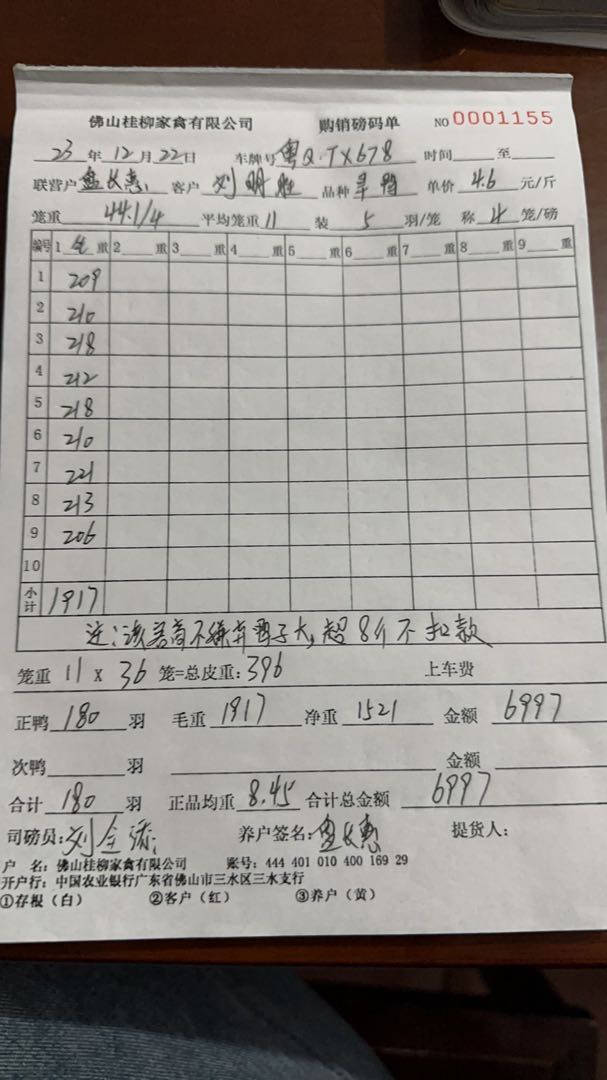 佛山桂柳家禽有限公司 购销磅码单 NO 0001155
23年12月22日 车牌号粤Q·TX678 时间 至
联营户 盘长惠 客户 刘明胜 品种 旱鸭 单价 4.6 元/斤
笼重 44.1/4 平均笼重 11 装 5 羽/笼 称 4 笼/磅
编号 1 毛 重 2 重 3 重 4 重 5 重 6 重 7 重 8 重 9 重
1 209
2 210
3 218
4 212
5 218
6 210
7 221
8 213
9 206
10
小计 1917
注:该客商不嫌弃鸭子大,超8斤不扣款
笼重 11 x 36 笼=总皮重: 396 上车费
正鸭 180 羽 毛重 1917 净重 1521 金额 6997
次鸭 羽 金额
合计 180 羽 正品均重 8.45 合计总金额 6997
司磅员: 刘全 养户签名: 盘长惠 提货人:
户 名: 佛山桂柳家禽有限公司 账号: 444 401 010 400 169 29
开户行: 中国农业银行广东省佛山市三水区三水支行
①存根(白) ②客户(红) ③养户(黄)